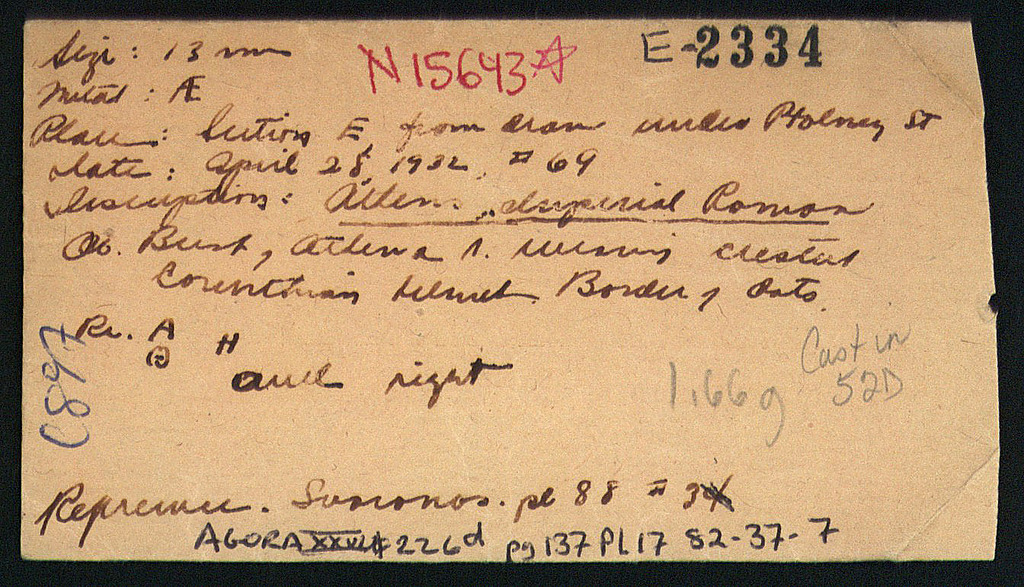 E-2334
N 15643
Size: 13 mm
Metal: Æ
Place: Section E, from drain under Ptolemy St
Date: April 28, 1932, # 69
Description: Athens, Imperial Roman
Ob. Bust of Athena r. wearing crested
Corinthian helmet. Border of dots.
Re. A
Θ H
owl right
1.66g
Cast in
52D
C897
Reference. Svoronos. pl 88 # 3
AGORA XXVI # 226d pg 137 PL 17 82-37-7